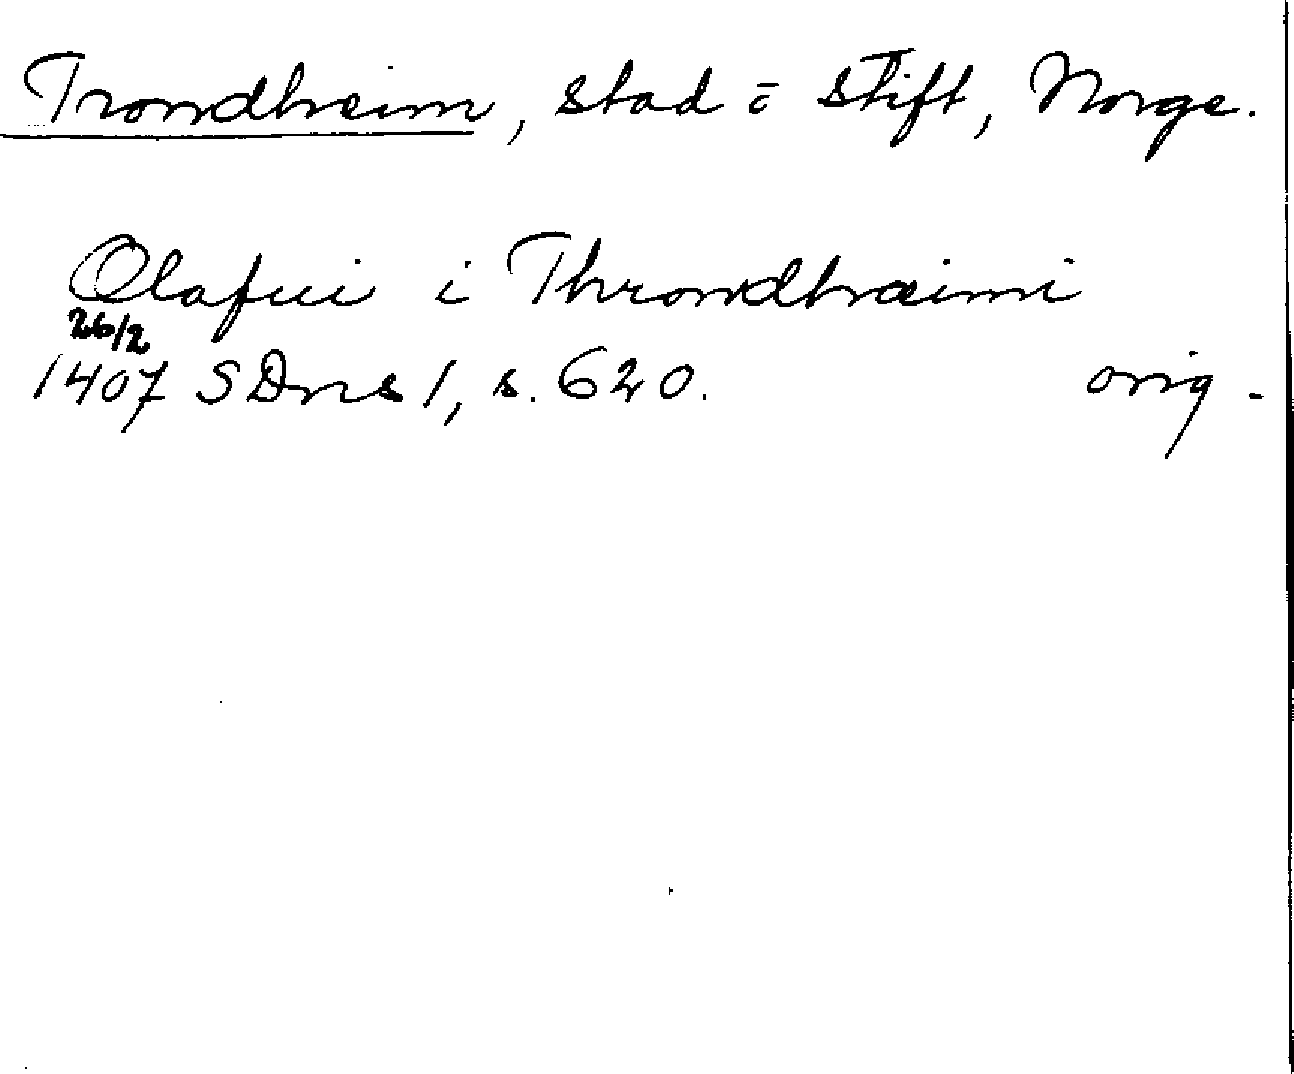 Trondheim, stad o stift, Norge.
Olafui i Throndhæimi
26/2
1407 SDns 1, s. 620. orig.